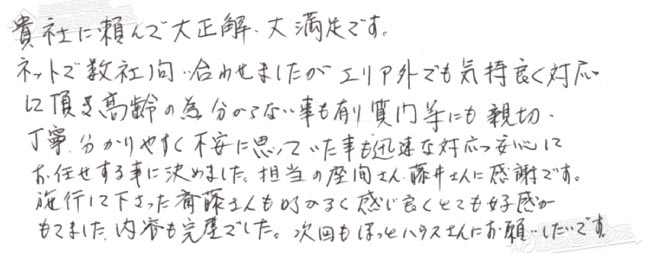 貴社に頼んで大正解、大満足です。
ネットで数社問い合わせましたがエリア外でも気持良く対応
に頂き高齢の為分からない事も有り質問等にも親切、
丁寧、分かりやすく不安に思っていた事も迅速な対応で安心して
お任せする事に決めました。担当の座間さん、藤井さんに感謝です。
施行して下さった斎藤さんも明るく感じ良くとても好感が
もてました。内容も完璧でした。次回もほっとハウスさんにお願いしたいです。